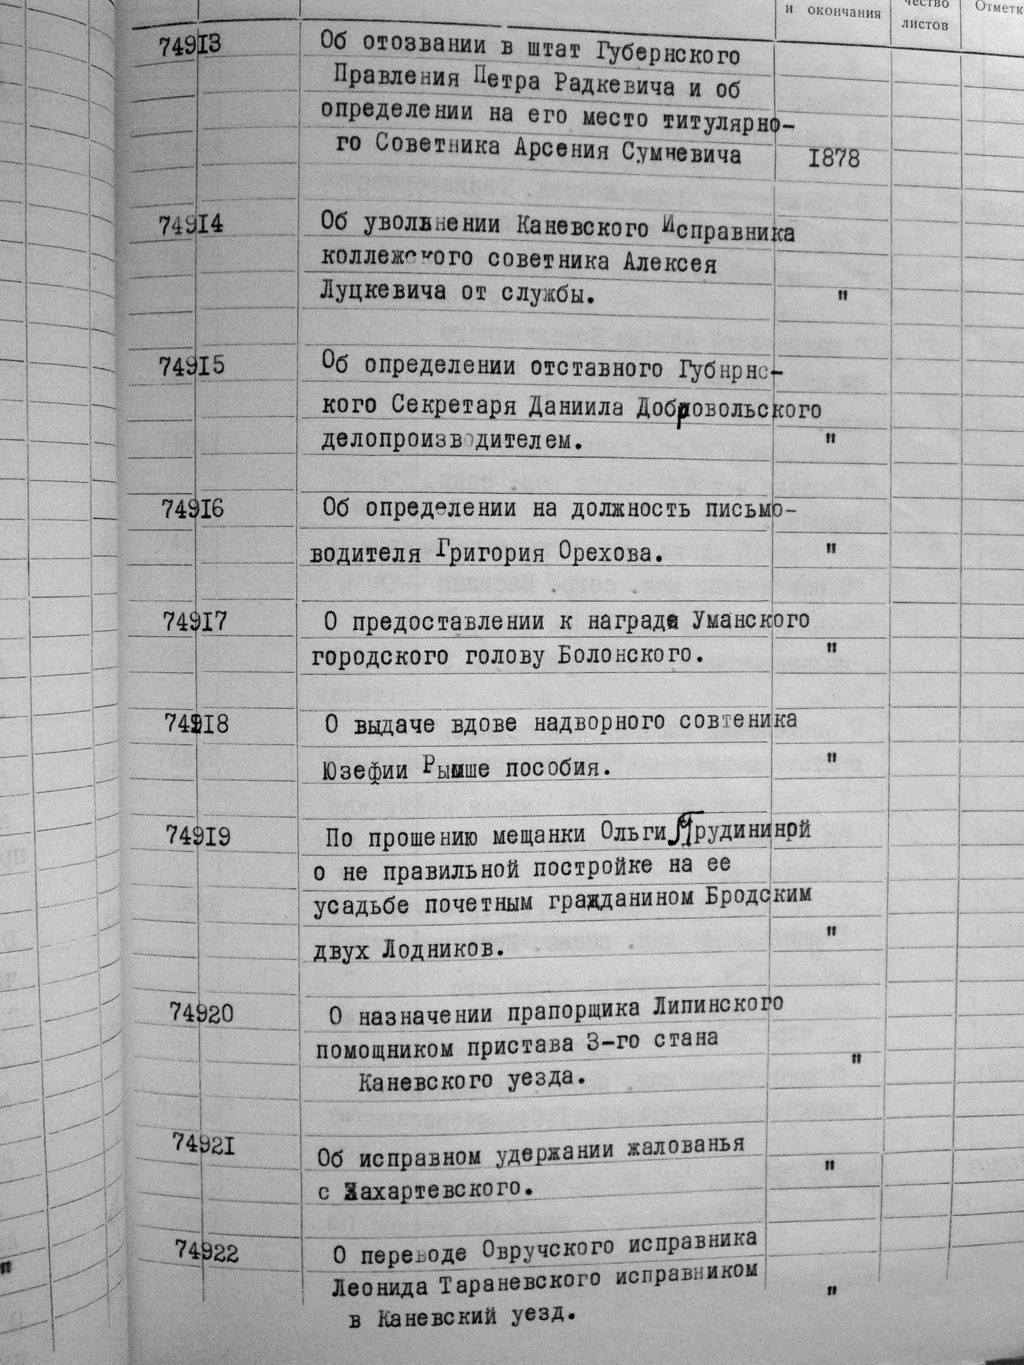 и окончания
чество
листов
Отметк
74913 Об отозвании в штат Губернского
Правления Петра Радкевича и об
определении на его место титулярно-
го Советника Арсения Сумневича 1878
74914 Об увольнении Каневского Исправника
коллежского советника Алексея
Луцкевича от службы. "
74915 Об определении отставного Губнрнс-
кого Секретаря Даниила Добровольского
делопроизводителем. "
74916 Об определении на должность письмо-
водителя Григория Орехова. "
74917 О предоставлении к награде Уманского
городского голову Болонского. "
74918 О выдаче вдове надворного совтеника
Юзефии Рымше пособия. "
74919 По прошению мещанки Ольги Прудининой
о не правильной постройке на ее
усадьбе почетным гражданином Бродским
двух Лодников. "
74920 О назначении прапорщика Липинского
помощником пристава 3-го стана
Каневского уезда. "
74921 Об исправном удержании жалованья
с Захартевского. "
74922 О переводе Овручского исправника
Леонида Тараневского исправником
в Каневский уезд. "
"